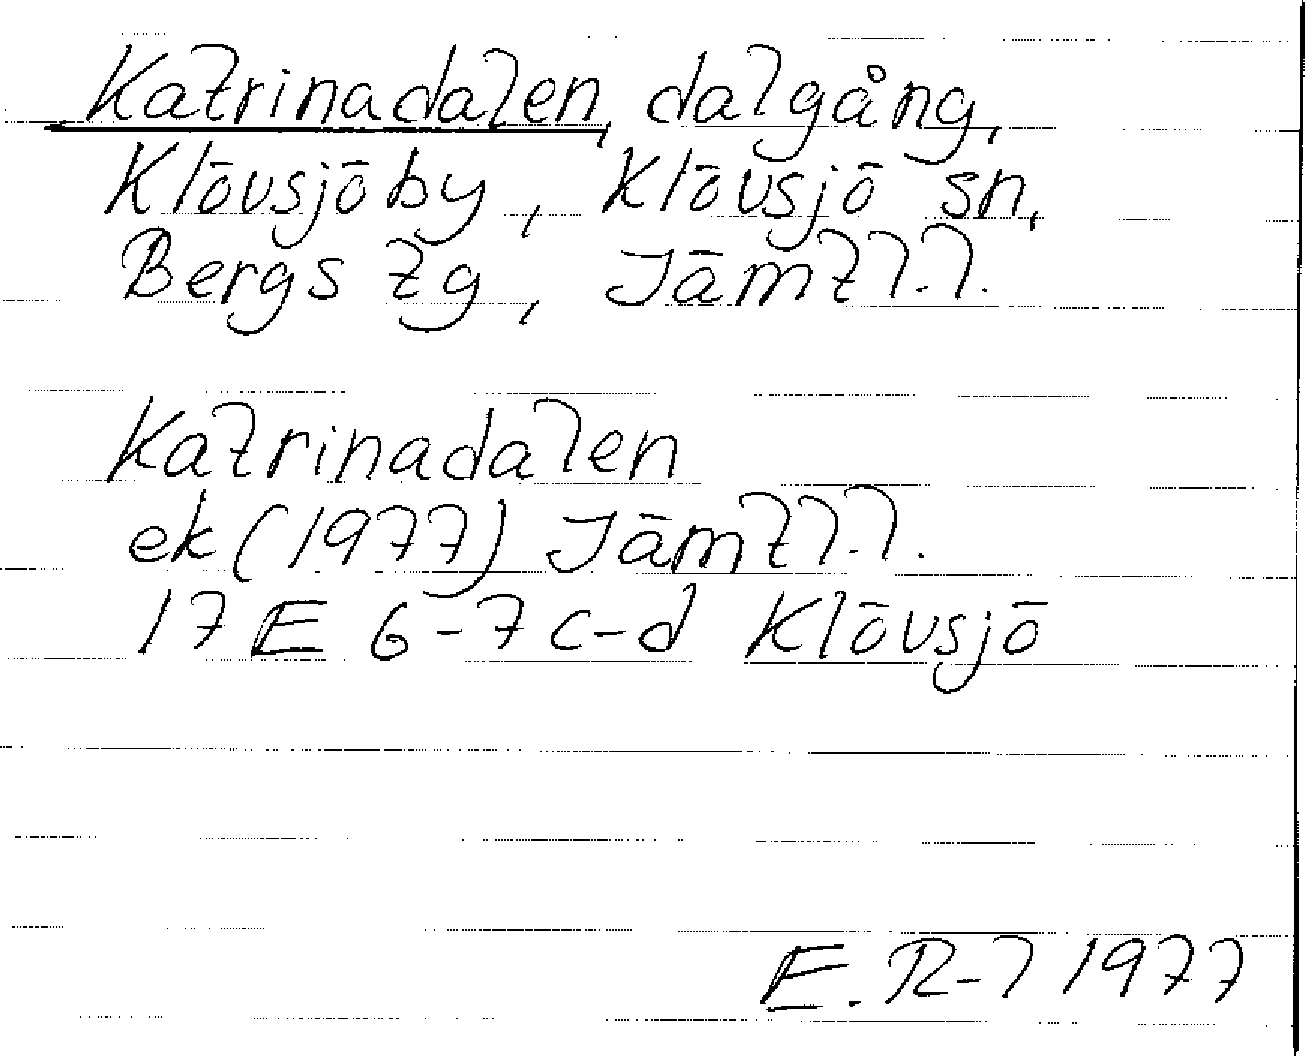 Katrinadalen, dalgång,
Klövsjöby, Klövsjö sn,
Bergs tg, Jämtl.l.
Katrinadalen
ek (1977) Jämtl.l.
17 E 6-7 c-d Klövsjö
E. R-l 1977